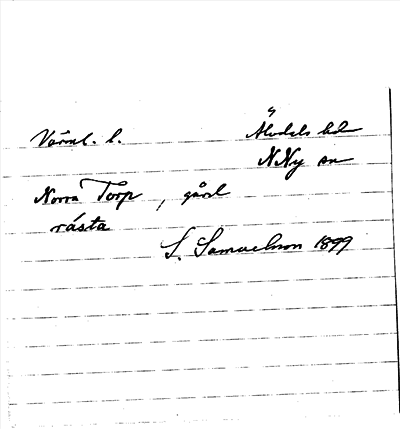 Värml. l.
Älvdals hd
N Ny sn
Norra Torp, gård
råsta
S. Samuelsson 1899